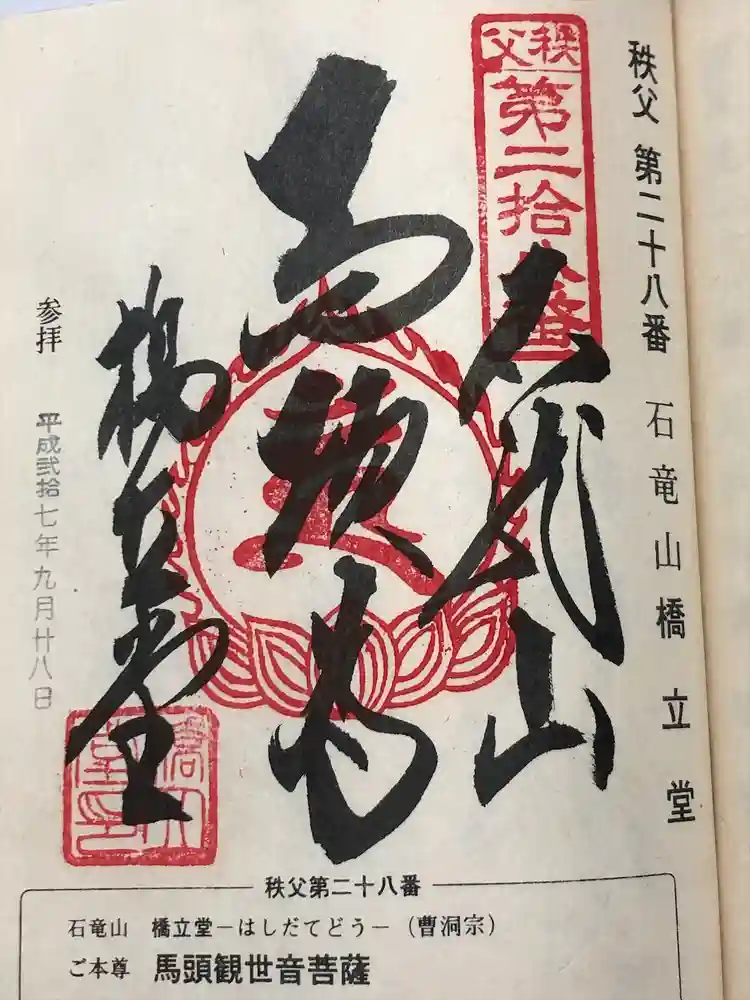 秩父 第二十八番 石竜山橋立堂
秩父
第二拾八番
石竜山
馬頭
橋立堂
参拝
平成弐拾七年九月廿八日
秩父第二十八番
石竜山 橋立堂－はしだてどう－(曹洞宗)
ご本尊 馬頭観世音菩薩